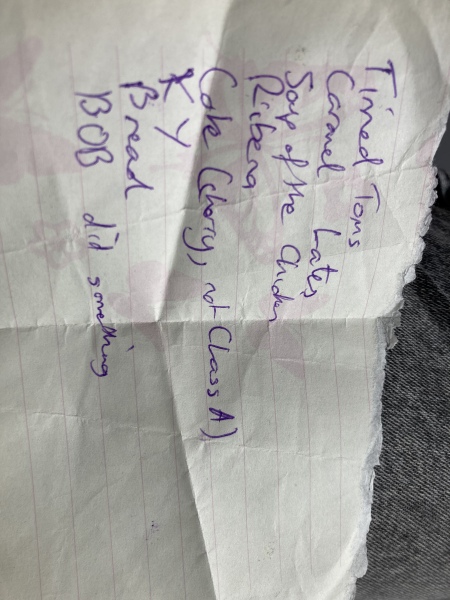 Tinned Toms
Caramel Lates
Soup of the Chicken
Ribena
Coke (cherry, not Class A)
KY
Bread
BOB did something